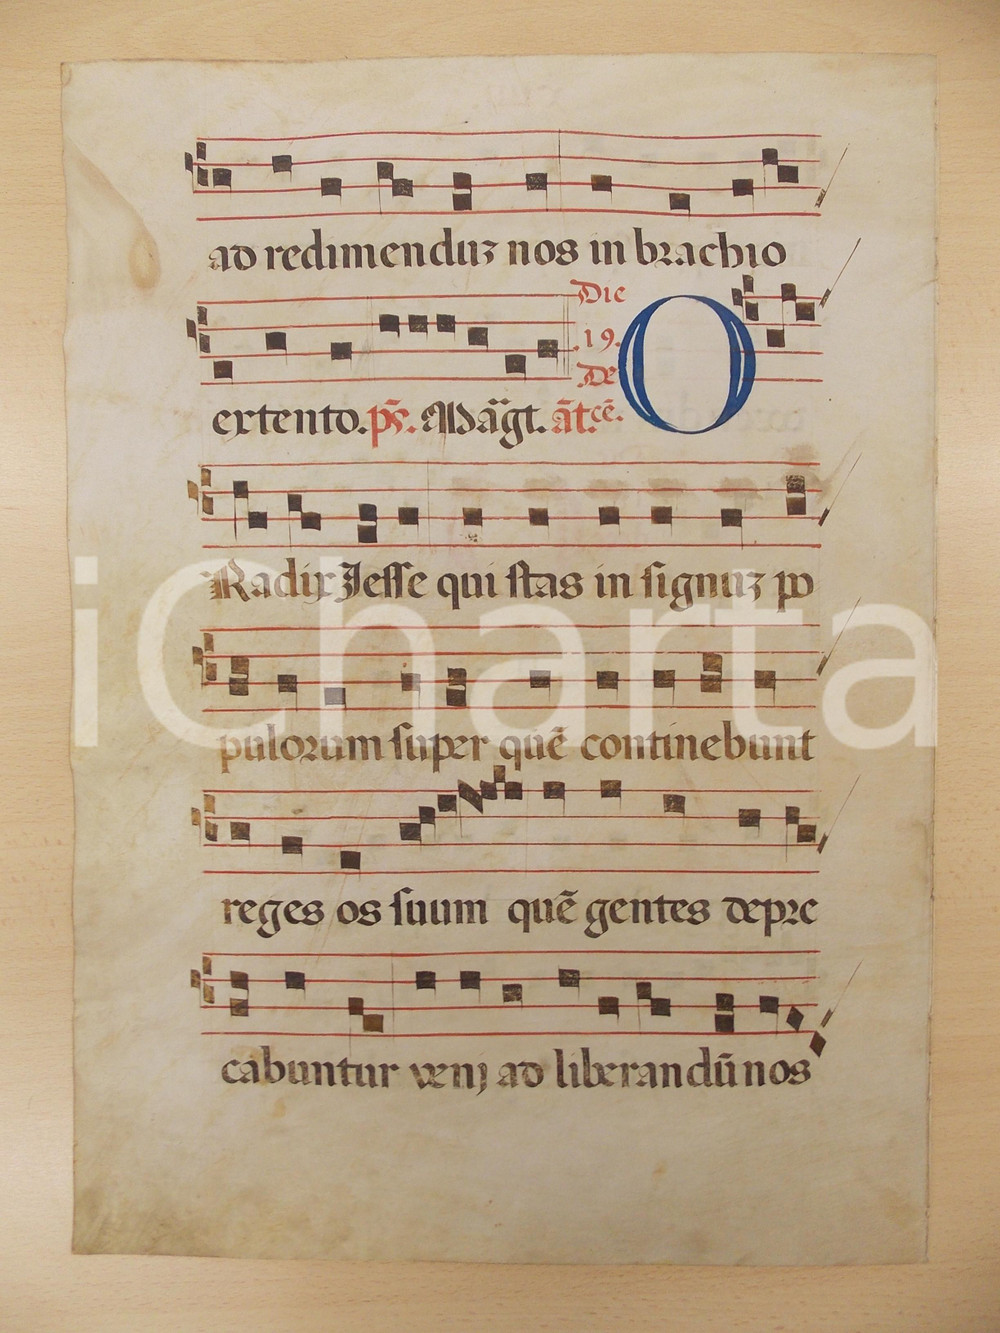 ad redimenduz nos in brachio
Die
19.
De
extento. ps̄. Māgt. āt. cē.
O
Radix Jesse qui stas in signuz po
pulorum super quē continebunt
reges os suum quē gentes depre
cabuntur venj ad liberandū nos
iCharta